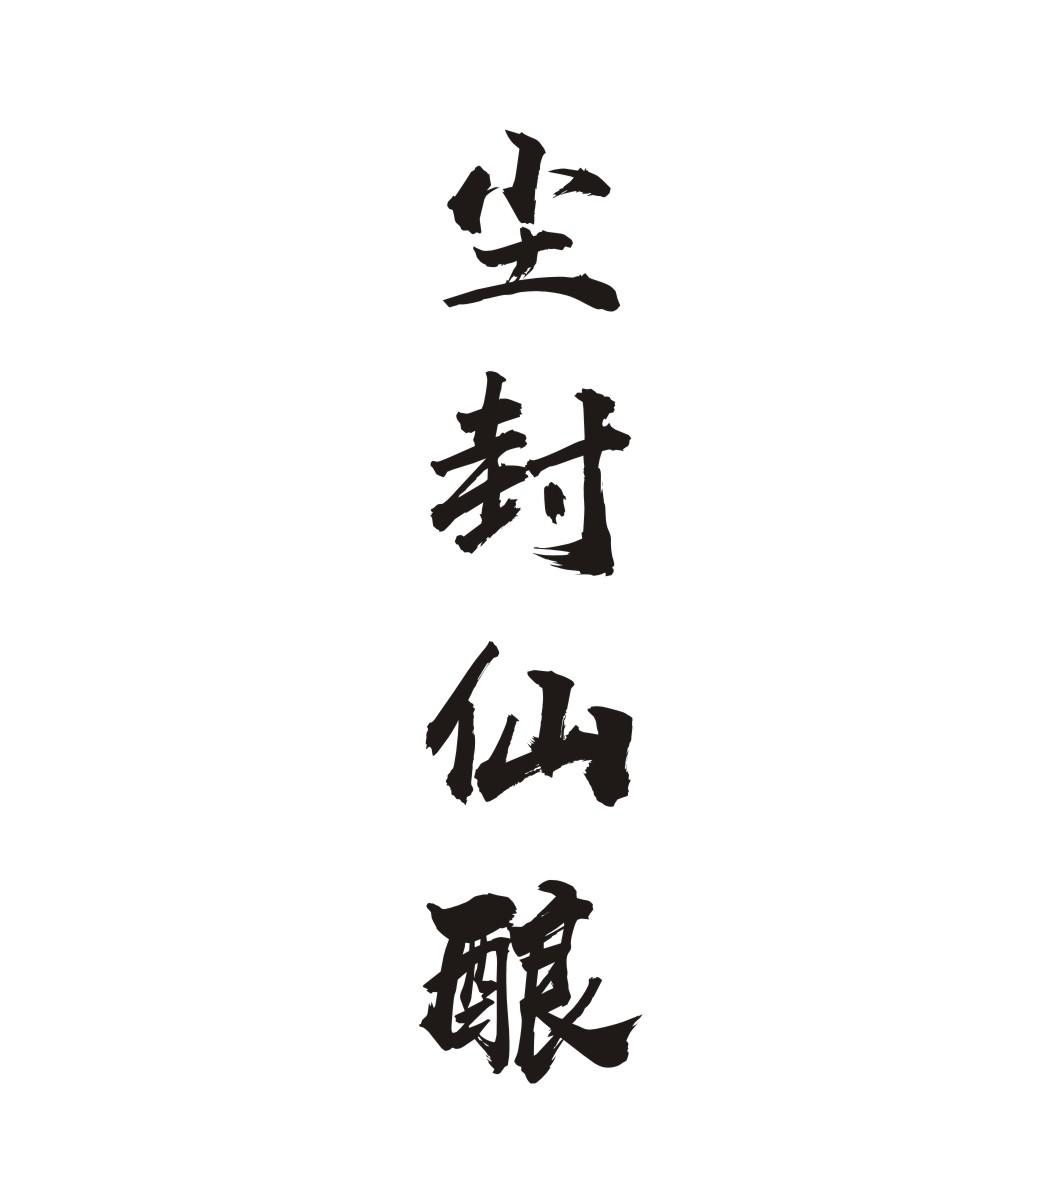 尘封仙酿